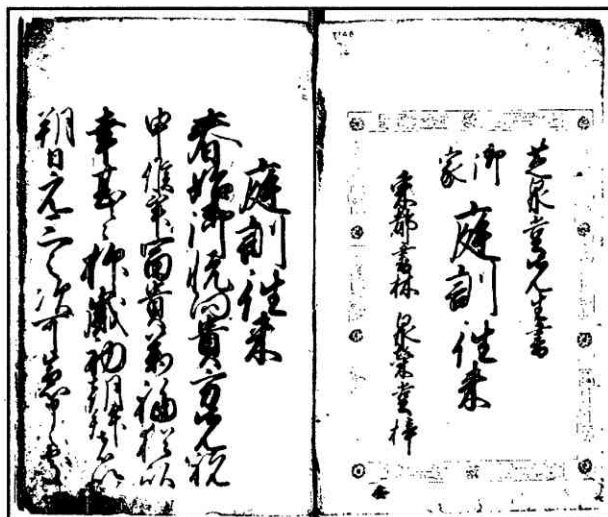 芝泉堂先生書
御家
庭訓往来
東都書林 泉榮堂梓
庭訓往来
春始御悦向貴方先祝
申候畢富貴万福猶以
幸甚々抑歳初朝拝者以
朔日元三之次可急申之處